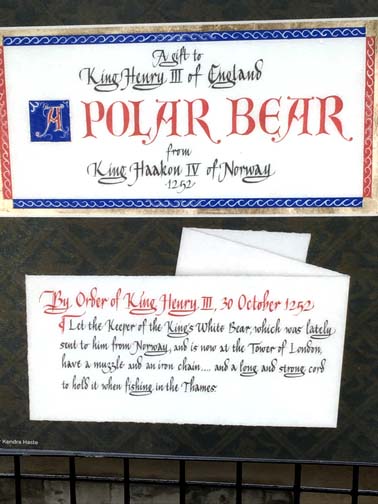 A gift to
King Henry III of England
A POLAR BEAR
from
King Haakon IV of Norway
1252
By Order of King Henry III, 30 October 1252
¶ Let the Keeper of the King's White Bear, which was lately
sent to him from Norway, and is now at the Tower of London,
have a muzzle and an iron chain.... and a long and strong cord
to hold it when fishing in the Thames.
Kendra Haste